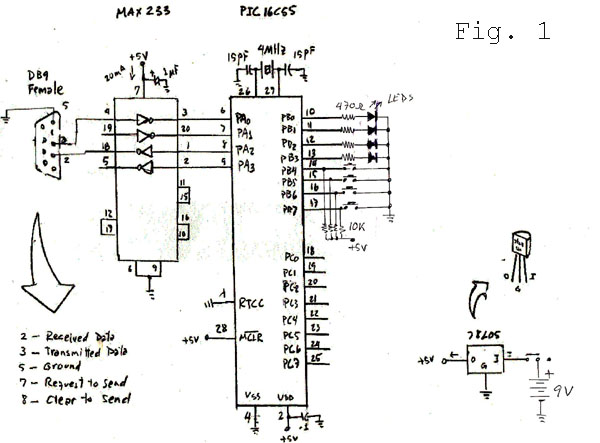 MAX 233
PIC 16C55
Fig. 1
+5V
20mA
1μF
7
15pF
4MHz
15pF
26
27
DB9
Female
5
3
2
4
3
6
PA0
19
20
7
PA1
18
1
8
PA2
5
2
9
PA3
11
15
12
17
16
10
6
9
PB0
10
PB1
11
PB2
12
PB3
13
PB4
14
PB5
15
PB6
16
PB7
17
470Ω
LEDS
10K
+5V
PC0
18
PC1
19
PC2
20
PC3
21
PC4
22
PC5
23
PC6
24
PC7
25
1
RTCC
+5V
28
MCLR
VSS
VDD
4
2
.1
+5V
2 - Received Data
3 - Transmitted Data
5 - Ground
7 - Request to Send
8 - Clear to Send
O
G
I
78L05
+5V
O
G
I
+
9V